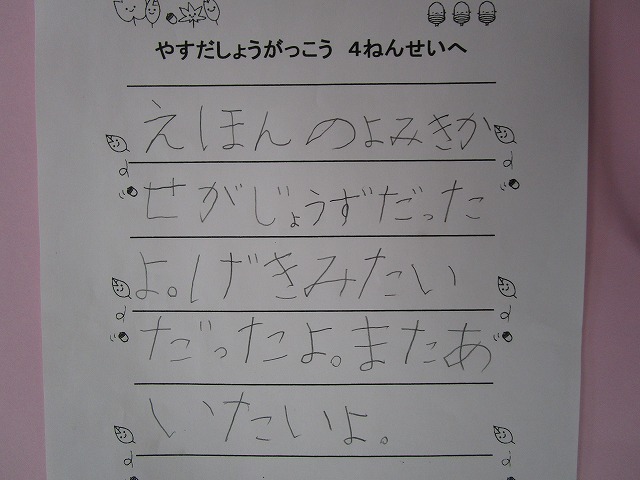 やすだしょうがっこう 4ねんせいへ
えほんのよみきか
せがじょうずだった
よ。げきみたい
だったよ。またあ
いたいよ。